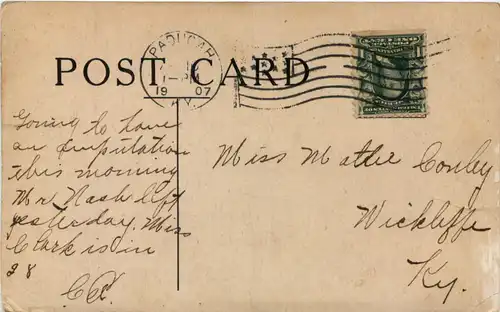 POST CARD
PADUCAH
1-PM
1907
KY.
Going to have
an amputation
this morning
Mr Nash left
yesterday. Miss
Clark is in
28
Miss Mattie Conley
Wickliffe
Ky.